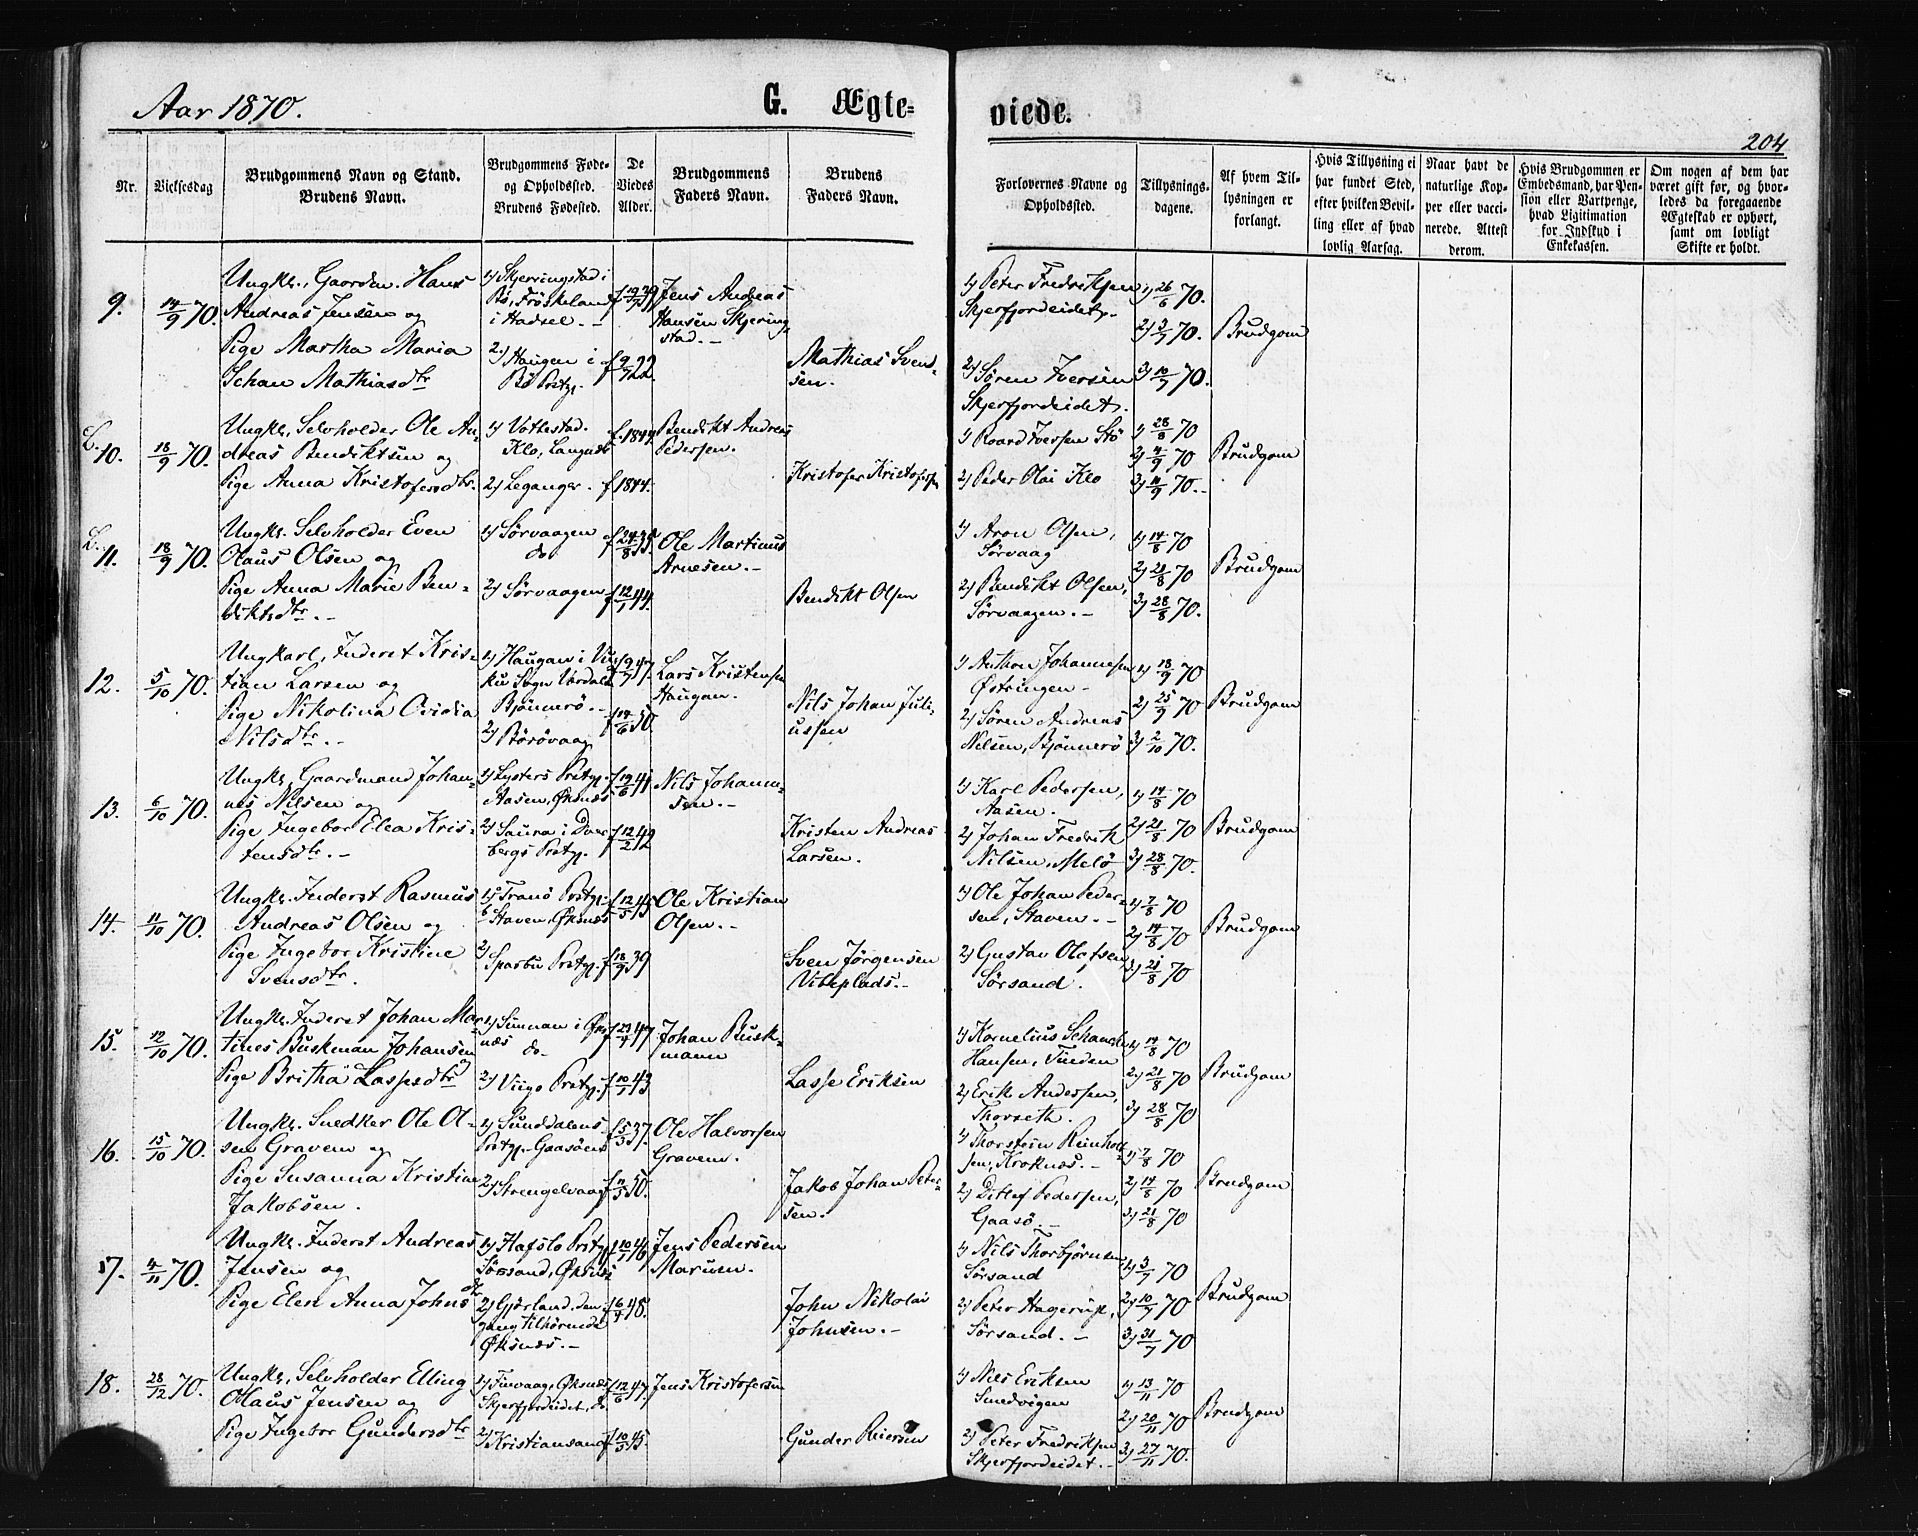 Aar 1870.
G. Ægte-
viede.
204
Nr.
Vielsesdag
Brudgommens Navn og Stand.
Brudens Navn.
Brudgommens Føde-
og Opholdssted.
Brudens Fødested.
De
Viedes
Alder.
Brudgommens
Faders Navn.
Brudens
Faders Navn.
Forlovernes Navne og
Opholdssted.
Tillysnings-
dagene.
Af hvem Til-
lysningen er
forlangt.
Hvis Tillysning ei
har fundet Sted,
efter hvilken Bevil-
ling eller af hvad
lovlig Aarsag.
Naar havt de
naturlige Kop-
per eller vacci-
nerede. Attest
derom.
Hvis Brudgommen er
Embedsmand, har Pen-
sion eller Vartpenge,
hvad Ligitimation
for Indskud i
Enkekassen.
Om nogen af dem har
været gift før, og hvor-
ledes da foregaaende
Ægteskab er ophørt,
samt om lovligt
Skifte er holdt.
9.
14/9 70.
Ungk., Gaarden. Hans
Andreas Jensen og
Pige Martha Maria
Schan Mathiasdtr
1) Skjerringstad i
Bø, Frøskeland
i Hadsel. -
2) Haugen i
Bø Prstgj.
f 9/7 22
Jens Andreas
Hansen Skjering
stad. -
Mathias Svend-
sen.
1) Peter Fredriksen
Skjerfjordeidet.
2) Søren Iversen
Skjerfjordeidet.
1) 26/6 70.
2) 3/7 70.
3) 10/7 70.
Brudgom
10.
18/9 70.
Ungk., Selvholder Ole An-
dreas Bendiktsen og
Pige Anna Kristofersdtr.
1) Vottestad.
Klo, Langenes
2) Leganger.
f. 1844
f 1844.
Bendikt Andreas
Pedersen.
Kristofer Kristofersen
1) Roard Iversen Stø
2) Peder Olai Klo
1) 28/8 70
2) 4/9 70
3) 11/9 70.
Brudgom
11.
18/9 70.
Ungk. Selvholder Even
Olaus Olsen og
Pige Anna Marie Ben-
diktsdtr. -
1) Sørvaagen
do
2) Sørvaagen
f 24/8 35.
f 12/1 44.
Ole Martinus
Arnesen. -
Bendikt Olsen
1) Aron Olsen,
Sørvaag
2) Bendikt Olsen,
Sørvaagen. -
1) 14/8 70
2) 21/8 70
3) 28/8 70.
Brudgom
12.
5/10 70.
Ungkarl, Inderst Kris-
tian Larsen og
Pige Nikolina Ovidia
Nilsdtr. -
1) Haugan i Vu-
ku Sogn Værdalen
Bjønnrø. -
2) Børøvaag
f 9/7 47.
f 14/6 50.
Lars Kristensen
Haugan.
Nils Johan Juli-
ussen
1) Anthon Johannesen
Østringen -
2) Søren Andreas
Nilsen, Bjønnerø
1) 18/9 70
2) 25/9 70
3) 2/10 70.
Brudgom
13.
6/10 70.
Ungk., Gaardmand Johan-
nes Nilsen og
Pige Ingebor Elea Kris-
tensdtr. -
1) Lysters Prstgj.
Aasen, Øksnæs
2) Saura i Dver-
bergs Prstgj.
f 19/6 41
f 12/2 42
Nils Johann-
sen. -
Kristen Andreas
Larsen.
1) Karl Pedersen,
Aasen.
2) Johan Fredrik
Nilsen, Melø
1) 14/8 70
2) 21/8 70
3) 28/8 70.
Brudgom
14.
11/10 70.
Ungk. Inderst Rasmus
Andreas Olsen og
Pige Ingebor Kristine
Svensdtr.
1) Tranø Prstgj.
Staven, Øksnæs
2)
Sparbu Prstgj.
f 12/5 45
f 18/9 39
Ole Kristian
Olsen. -
Sven Jørgensen
Vibeplads. -
1) Ole Johan Peder-
sen, Staven. -
2) Gustav Olafsen
Sørsand.
1) 7/8 70
2) 14/8 70
3) 21/8 70
Brudgom
15.
12/10 70.
Ungk. Inderst Johan Mar
tines Buskman Johansen og
Pige Britha Lassesdtr
1) Sunnan i Øks-
næs do -
2) Viigø Prstgj.
f 10/1 43
Johan Busk-
mann
Lasse Eriksen
1) Kornelius Schanch
Hansen, Tinden
2) Erik Andersen,
Thorseth.
1) 14/8 70
2) 21/8 70
3) 28/8 70
Brudgom
16.
15/10 70.
Ungk. Snedker Ole Ol-
sen Gravem og
Pige Susanna Kristine
Jakobsen.
1) Sunddalens
Prstgj. Gaasøen
2) Strengelvaag
f 5/5 37.
f 11/5 50.
Ole Halvorsen
Gravem.
Jakob Johan Peter-
sen.
1) Thorstein Reinholt-
sen, Kroknæs. -
2) Ditlef Pedersen,
Gaasø. -
1) 7/8 70
2) 14/8 70
3) 21/8 70
Brudgom
17.
4/11 70.
Ungk. Inderst Andreas
Jensen og
Pige Elen Anna Johnsdtr
1) Hafslo Prstgj.
Sørsand, Øksnæs
2) Gjørland, den
gang tilhørende
Øksnæs. -
f 10/1 46
f 6/4 48.
Jens Pedersen
Maruen.
John Nikolai
Johnsen. -
1) Nils Thorbjørnsen
Sørsand
2) Peter Hagerup,
Sørsand. -
1) 3/7 70
2) 10/7 70
3) 31/7 70
Brudgom
18.
28/12 70.
Ungk., Selvholder Elling
Olaus Jensen og
Pige Ingebor Gundersdtr
1) Finvaag, Øksnæs
Skjerfjordeidet, do
2) Kristiansand
f 12/6 47.
f 10/3 45.
Jens Kristofersen
Gunder Reiersen
1) Nils Eriksen
Smedvigen
2) Peter Fredriksen
Skjerfjordeidet. -
1) 13/11 70
2) 20/11 70
3) 27/11 70.
Brudgom